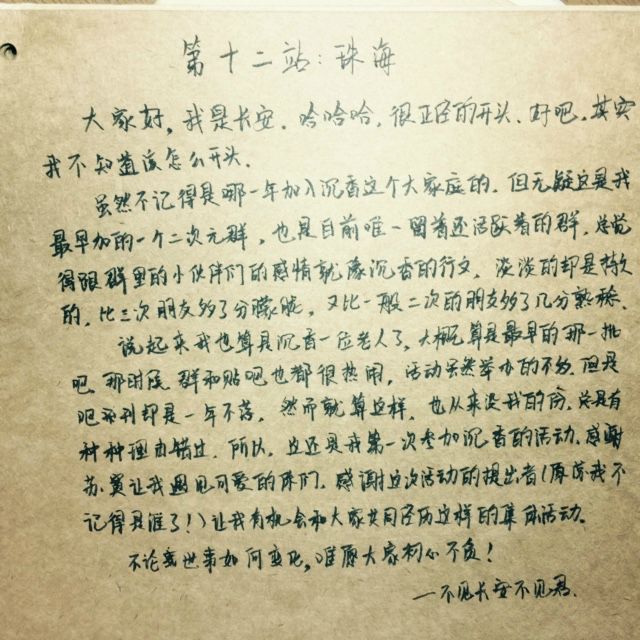 第十二站：珠海
大家好，我是长安。哈哈哈，很正经的开头。好吧，其实
我不知道该怎么开头。
虽然不记得是哪一年加入沉香这个大家庭的，但无疑这是我
最早加的一个二次元群，也是目前唯一留着还活跃着的群。总觉
得跟群里的小伙伴们的感情就像沉香的行文，淡淡的却是特殊
的，比三次朋友多了分朦胧，又比一般二次的朋友多了几分熟稔。
说起来我也算是沉香一位老人了，大概算是最早的那一批
吧。那时候群和贴吧也都很热闹，活动虽然举办的不多，但是
吧刊却是一年不落。然而就算这样，也从来没我的份，总是有
种种理由错过。所以，这还是我第一次参加沉香的活动。感谢
苏、让我遇见可爱的你们。感谢这次活动的提出者（原谅我不
记得是谁了！）让我有机会和大家共同经历这样的集体活动。
不论世事如何变化，唯愿大家初心不负！
——不见长安不见君。